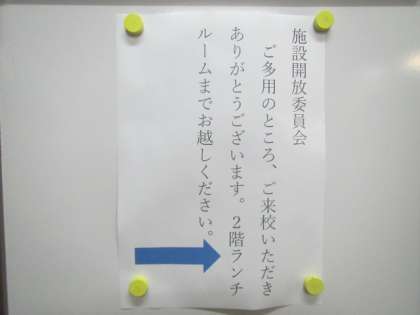 施設開放委員会
ご多用のところ、ご来校いただき
ありがとうございます。２階ランチ
ルームまでお越しください。